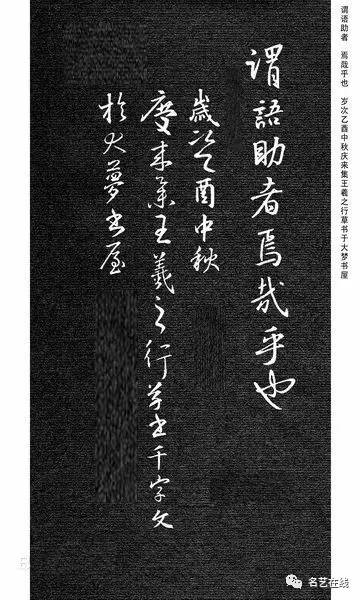 谓语助者 焉哉乎也 岁次乙酉中秋庆来集王羲之行草书于大梦书屋
謂語助者焉哉乎也
歲次乙酉中秋
慶来集王羲之行草書千字文
於大夢書屋
名艺在线